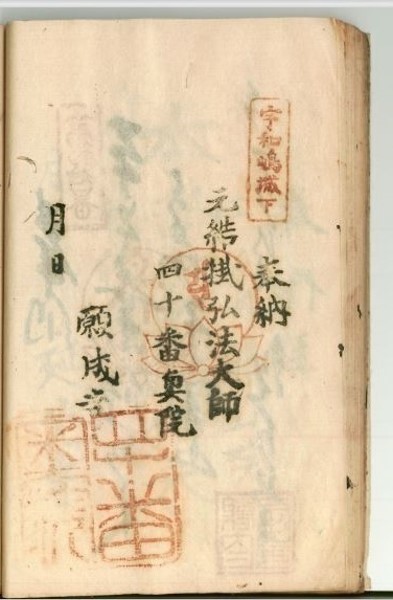 宇和嶋城下
奉納
元結掛弘法大師
四十番奥院
願成寺
月日